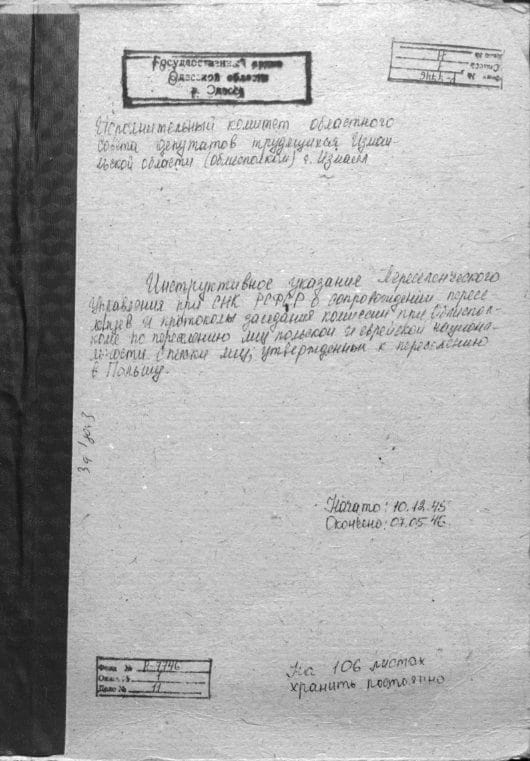 Государственный архив
Одесской области
г. Одесса
Фонд № Р-7746
Опись
Дело № 11
Исполнительный комитет областного
совета депутатов трудящихся Измаи-
льской области (облисполком) г. Измаил
Инструктивное указание Переселенческого
Управления при СНК РСФСР о сопровождении пересе
ленцев и протоколы заседания комиссии при Облиспол-
коме по переселению лиц польской и еврейской национа-
льности. Списки лиц, утвержденных к переселению
в Польшу.
Начато: 10.12.45
Окончено: 07.05.46.
На 106 листах
хранить постоянно
Фонд № Р-7746
Опись № 1
Дело № 11